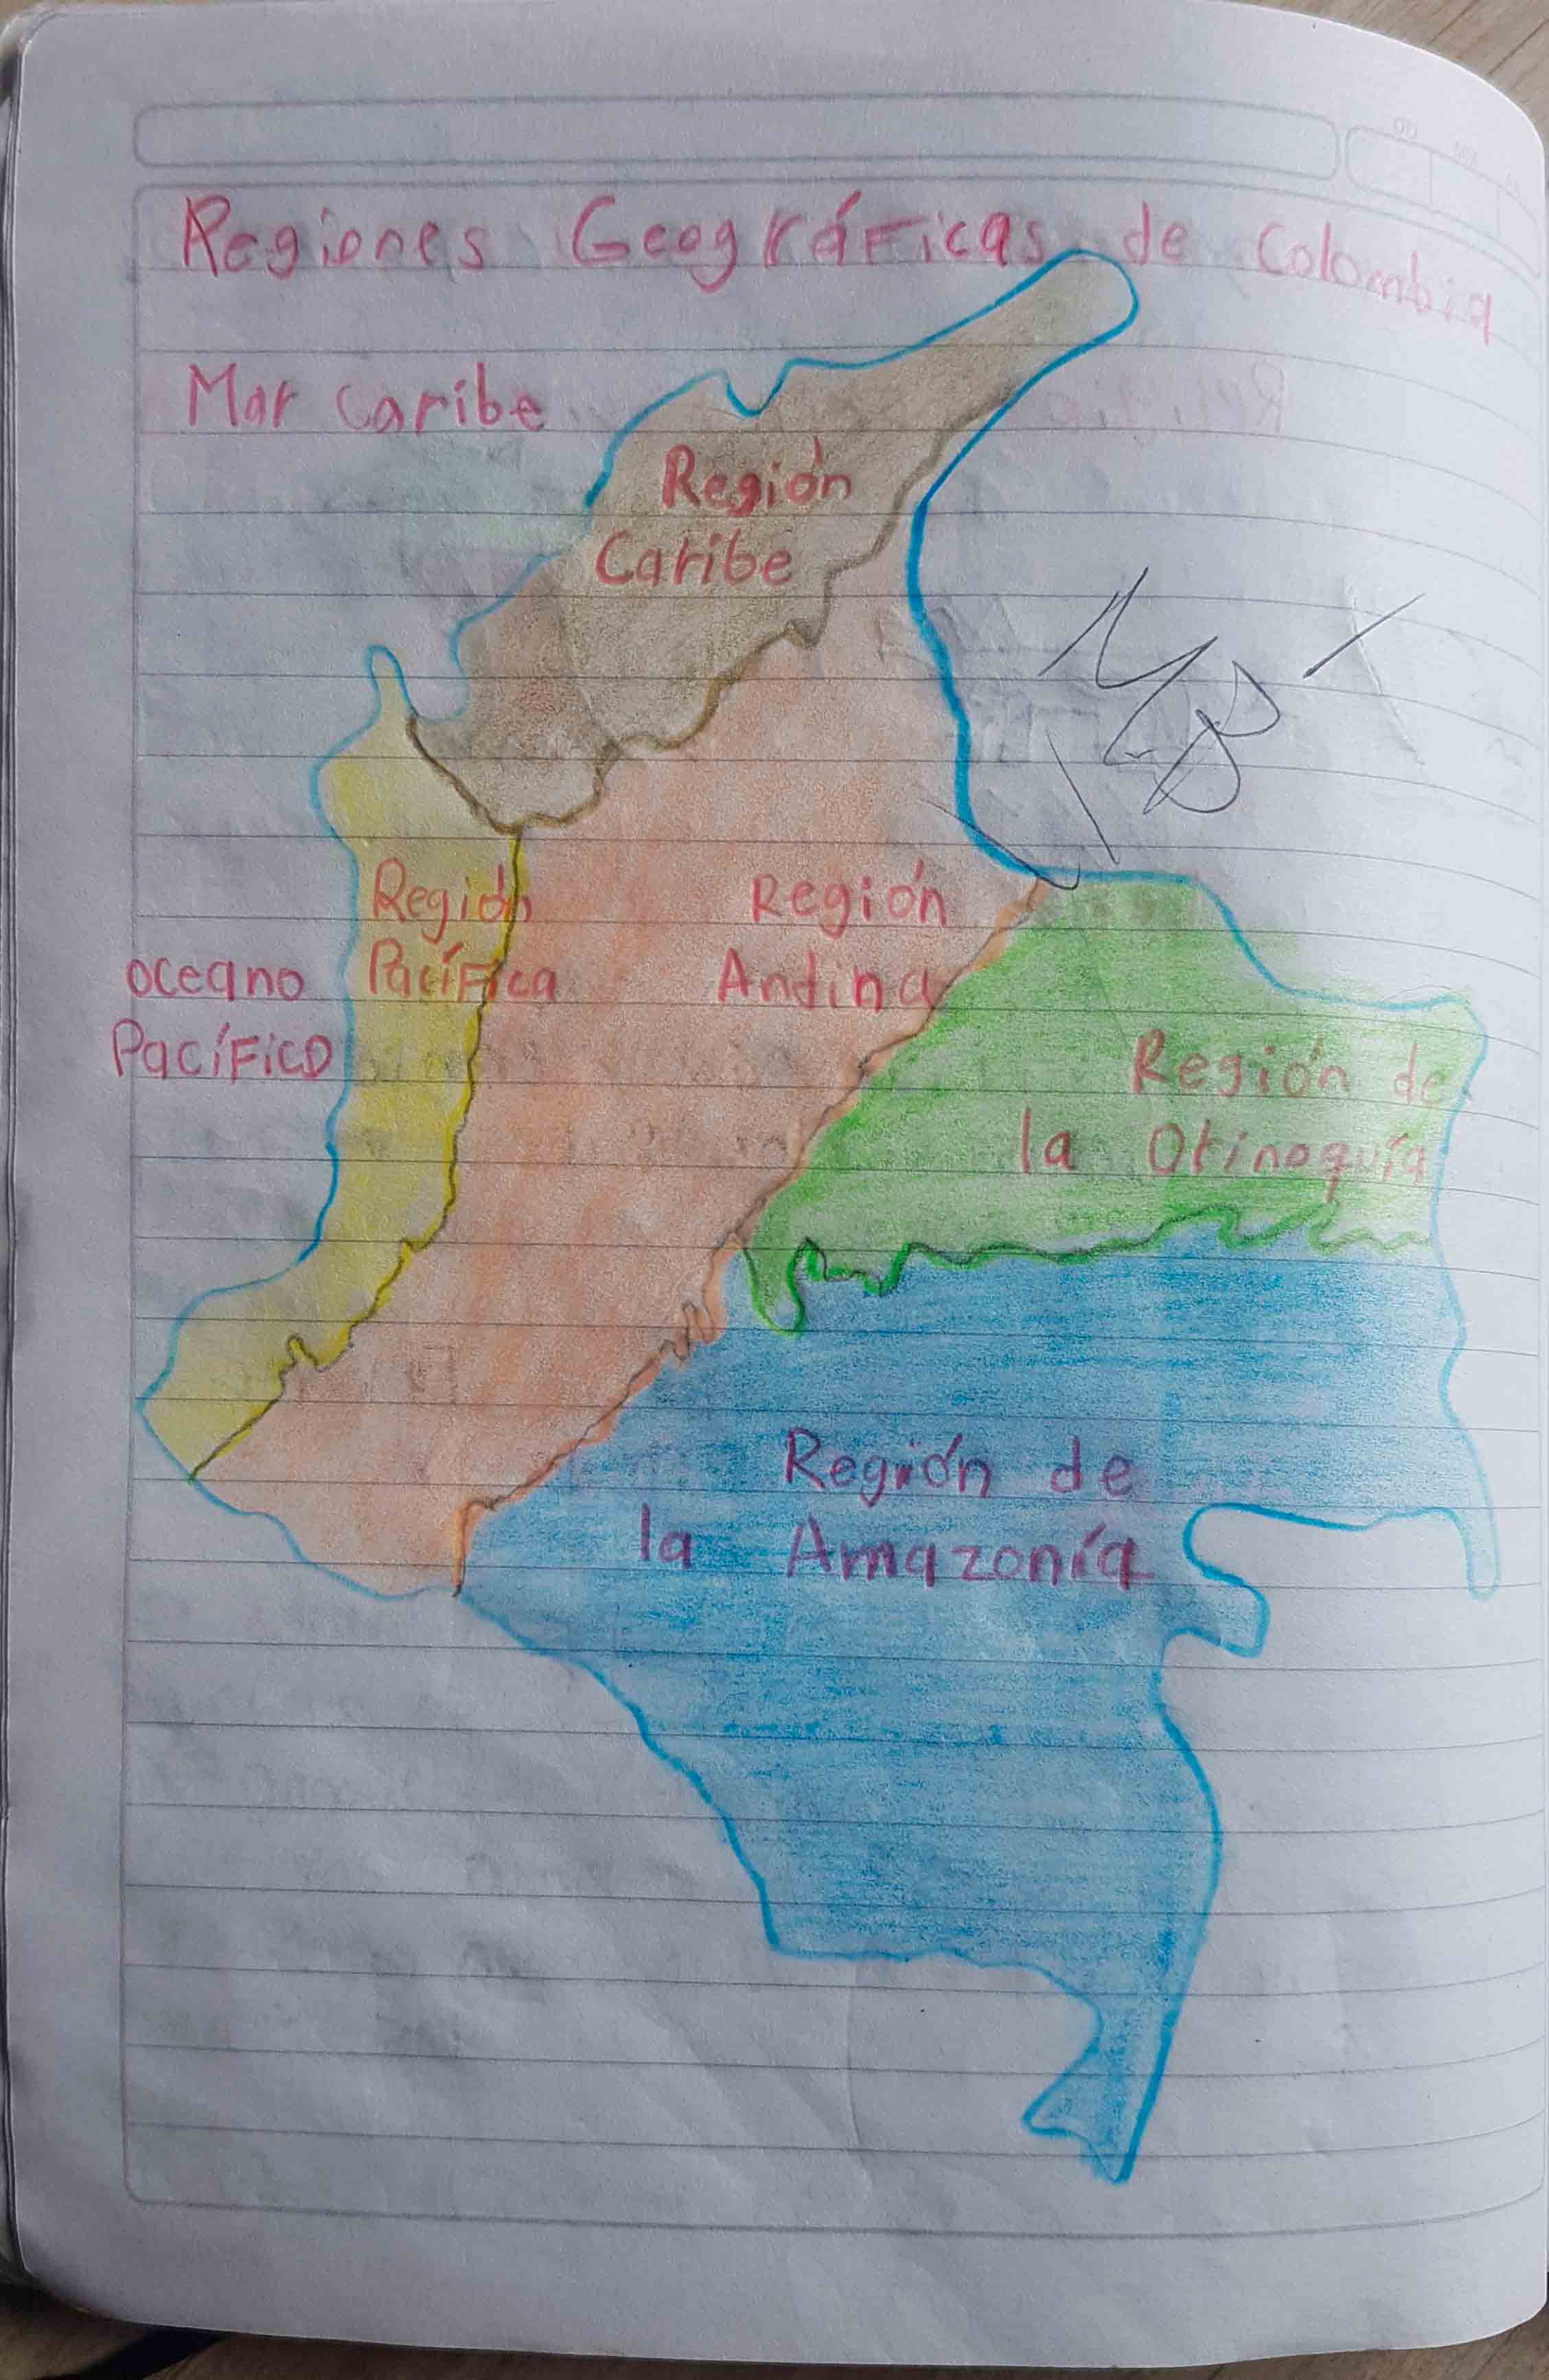 Regiones Geográficas de Colombia
Mar Caribe
Región
Caribe
Región
Pacífica
Región
Andina
oceano
Pacífico
Región de
la Orinoquía
Región de
la Amazonía